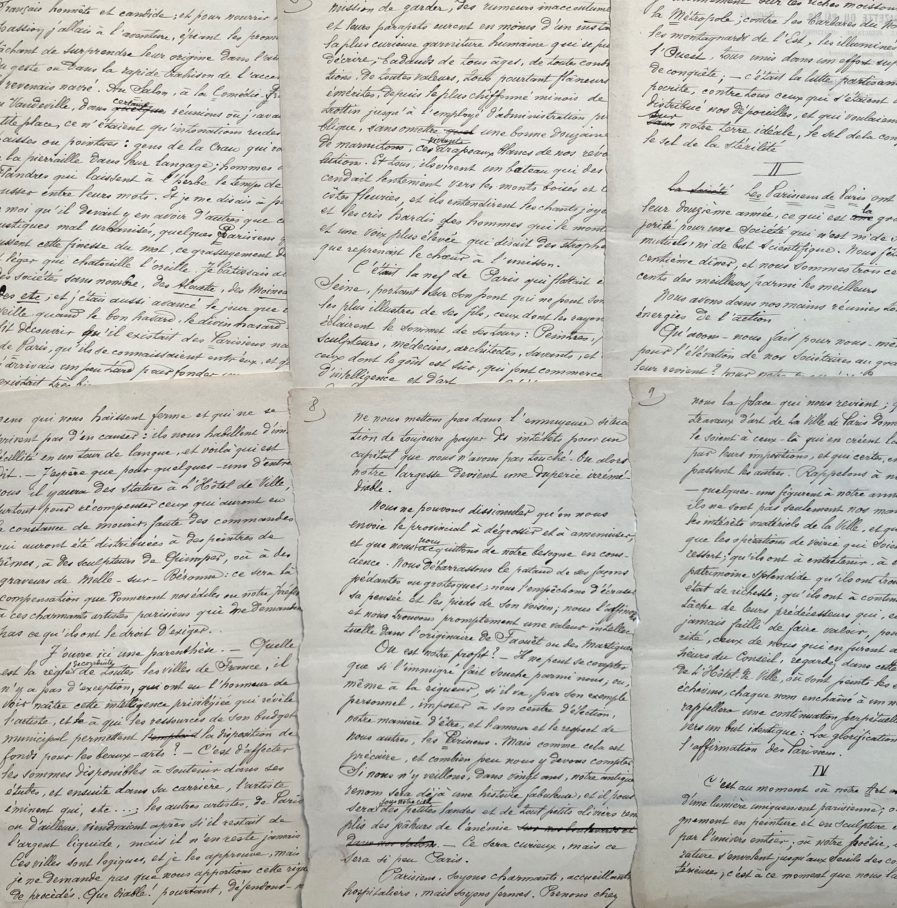 français honnête et candide ; et pour nourrir
passion j'allais à l'aventure, épeant les prem
tâchant de surprendre leur origine dans l'as
du geste ou dans la rapide trahison de l'acce
revenais navré. Du Salon, à la Comédie-Fr
u Vaudeville, dans certaines réunions où j'ava
tite place, ce n'étaient qu'intonations rudes
aisses ou pointues : gens de la Crau qui ro
la pierraille dans leur langage ; hommes d
Flandres qui laissent à l'herbe le temps de
ousser entre leurs mots. Et je me disais à p
moi qu'il devait y en avoir d'autres que ce
ustiques mal urbanisés, quelques Parisiens q
ussent cette finesse du mot, ce grasseyement d
léger qui chatouille l'oreille. Je bâtissais d
es Sociétés sans nombre, des Alouette, des Moineau
des etc ; et j'étais aussi avancé le jour que
veille quand le bon hasard, le divin hasard
fit découvrir qu'il existait des Parisiens na
de Paris, qu'ils se connaissaient entr'eux, et q
j'arrivais un peu tard pour fonder un
existait très
mission de garder, des rumeurs inaccoutumé
et leurs parapets eurent en moins d'un insta
la plus curieuse garniture humaine que se pu
décrire ; badauds de tous âges, de toute cond
tions, de toutes valeurs, tous pourtant flâneurs
émérites, depuis le plus chiffonné minois de
trottin jusqu'à l'employé d'administration pu
blique, sans omettre une bonne douzaine
de marmitons, ces vivants drapeaux blancs de nos révo
lutions. Et tous, ils virent un bateau qui des
cendait lentement vers les monts boisés et l
côtes fleuries, et ils entendirent les chants joye
et les cris hardis des hommes qui le mont
et une voix plus élevée qui disait des strophe
que reprenait le chœur à l'unisson.
C'était la nef de Paris qui flottait e
Seine, portant sur son pont qui ne peut som
les plus illustres de ses fils, ceux dont les rayon
éclairent le sommet de ses tours : Peintres,
sculpteurs, médecins, architectes, savants, et
ceux dont le goût est sûr, qui font commerce
d'intelligence et d'art
la Métropole ; contre les barbares du No
les montagnards de l'Est, les illuminés
l'Ouest, tous unis dans un effort sup
de conquête ; — c'était la lutte partisane
poursuite, contre tous ceux qui s'étaient
distribué nos dépouilles, et qui voulurent
sur notre terre idéale, le sel de la con
le sel de la stérilité
II
La société Les Parisiens de Paris ont
leur douzième année, ce qui est la gra
porité pour une Société qui n'est ni de S
mutuels, ni de but scientifique. Nous fêt
centième dîner, et nous sommes trois ce
cents des meilleurs, parmi les meilleurs
Nous avons dans nos mains réunies to
énergies de l'action
Qu'avons-nous fait pour nous-mê
pour l'élévation de nos Sociétaires au gra
leur revient ? pour notre
gens qui nous haïssent ferme et qui ne se
privent pas d'en causer : ils nous habillent d'im
bécillité en un tour de langue, et voilà qui est
dit. — J'espère que pour quelques-uns d'entre
nous il y aura des statues à l'Hôtel de Ville,
surtout pour récompenser ceux qui auront eu
la constance de mourir, faute des commandes
qui auront été distribuées à des peintres de
Nîmes, à des sculpteurs de Quimper, ou à des
graveurs de Melle-sur-Béronne : ce sera la
compensation que donneront nos édiles ou notre préfet
à ces charmants artistes parisiens qui ne demandent
pas ce qu'ils ont le droit d'exiger.
J'ouvre ici une parenthèse. — Quelle
est la règle de toutes les villes de France, il
n'y a pas d'exception, qui ont eu l'honneur de
voir naître cette intelligence privilégiée qui révèle
l'artiste, et à qui les ressources de son budget
municipal permettent la disposition de
fonds pour les beaux-arts ? — C'est d'affecter
les sommes disponibles à soutenir dans ses
études, et ensuite dans sa carrière, l'artiste
éminent qui, etc... ; les autres artistes, de Paris
ou d'ailleurs, viendraient après s'il restait de
l'argent liquide, mais il n'en reste jamais
Ces villes sont logiques, et je les approuve, mais
je ne demande pas que nous apportions cette rigu
de procédés. Que diable ! pourtant, défendons-n
8
ne nous mettons pas dans l'ennuyeuse situa
tion de toujours payer des intérêts pour un
capital que nous n'avons pas touché. Ou alors
notre largesse devient une duperie irrémé-
diable.
Nous ne pouvons dissimuler qu'on nous
envoie le provincial à dégrossir et à amenuiser
et que nous nous acquittons de notre besogne en cons-
cience. Nous débarrassons le pataud de ses façons
pédantes ou grotesques ; nous l'empêchons d'écraser
sa pensée et les pieds de son voisin ; nous l'affinons
et nous trouvons promptement une valeur intellec-
tuelle dans l'originaire de Faouët ou des Martigues
Où est notre profit ? — Il ne peut se compter
que si l'immigré fait souche parmi nous, ou,
même à la rigueur, si il a, par son exemple
personnel, imposé à son centre d'élection,
notre manière d'être, et l'amour et le respect de
nous autres, les Parisiens. Mais comme cela est
précaire, et combien peu nous y devons compter
Si nous n'y veillons, dans vingt ans, notre antique
renom sera déjà une histoire fabuleuse, et il pous
sera sous notre ciel des petites landes et de tout petits oliviers rem
plis des pâleurs de l'anémie sur nos boulevards et
dans nos salons. — Ce sera curieux, mais ce
sera si peu Paris.
Parisiens, soyons charmants, accueillants
hospitaliers, mais soyons fermes. Prenons chez
9
nous la place qui nous revient ; q
travaux d'art de la Ville de Paris donn
le soient à ceux-là qui en créent la
par leurs impositions, et qui certes, en
passent les autres. Rappelons à n
— quelques-uns figurent à notre annu
ils ne sont pas seulement nos man
les intérêts matériels de la Ville, et qu
que les opérations de voirie qui soient
ressort ; qu'ils ont à entretenir, à e
patrimoine splendide qu'ils ont trou
état de richesse ; qu'ils ont à contin
tâche de leurs prédécesseurs qui, e
jamais failli de faire valoir, pou
cité, ceux de nous qui en furent d
sieurs du Conseil, regardez dans cette
de l'Hôtel de Ville, où sont peints les
échevins, chaque nom enchaîné à un m
rappellera une continuation perpétuelle
vers un but identique : la glorification
l'affirmation des Parisiens.
IV
C'est au moment où notre Art a
d'une lumière uniquement parisienne ; o
gnement en peinture et en sculpture e
par l'univers entier ; où notre poésie,
rature s'envolent jusqu'aux seuils des co
térieure ; c'est à ce moment que nous la